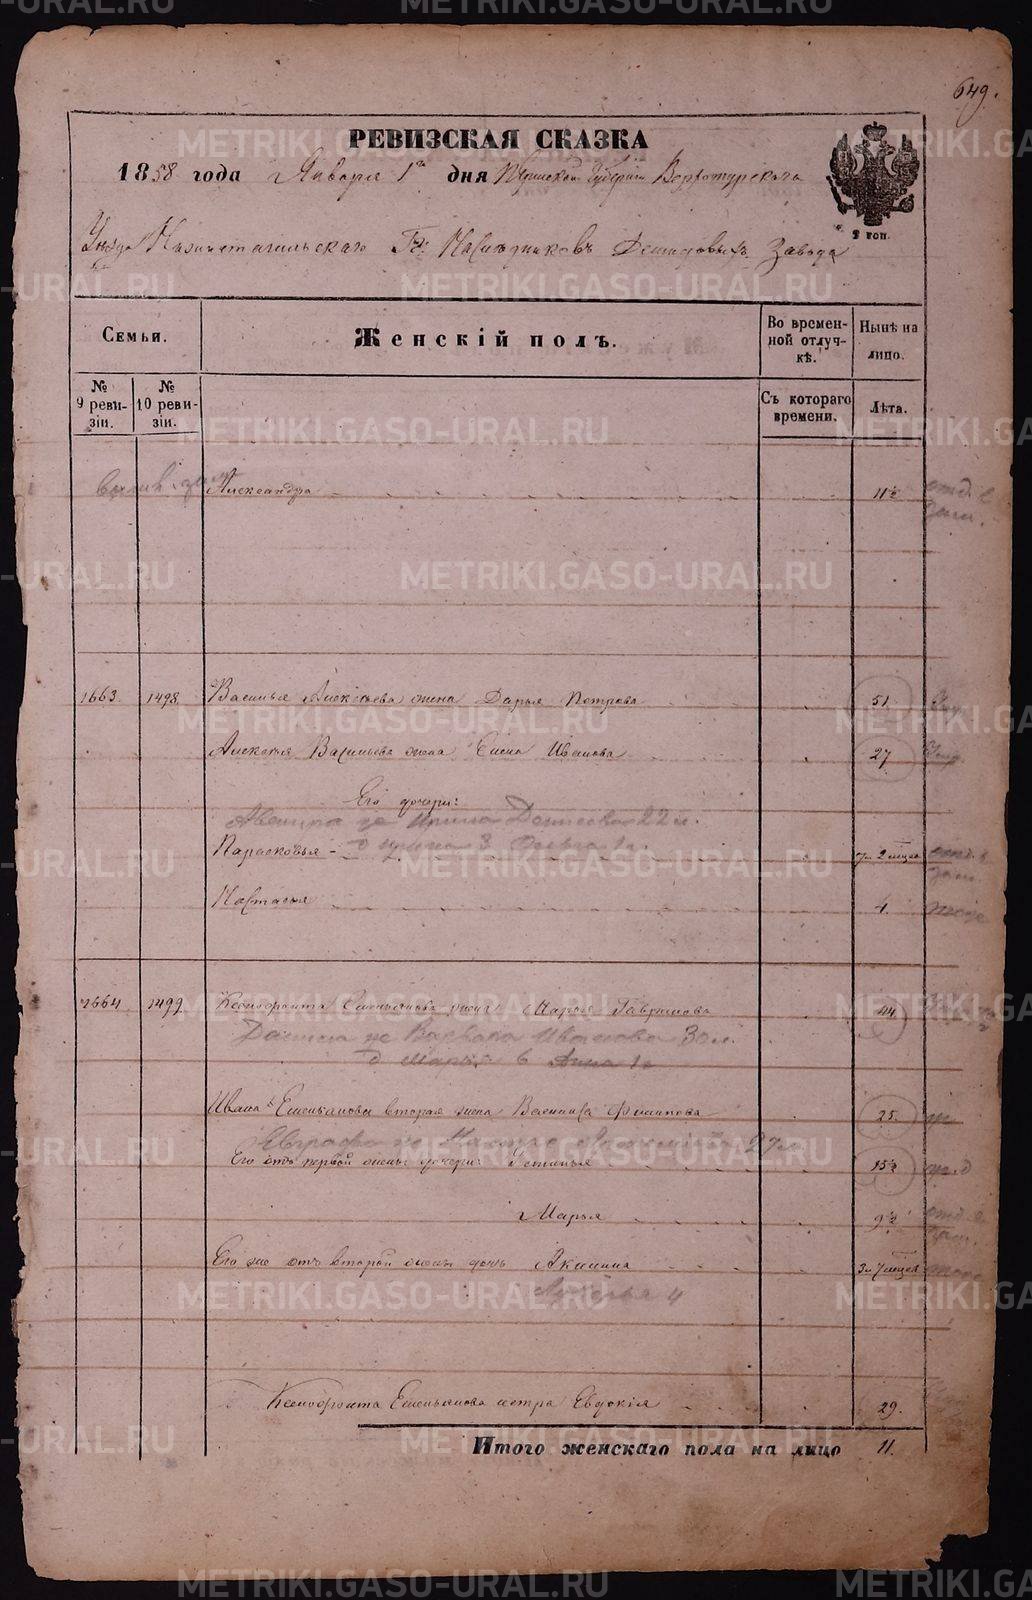 649.
РЕВИЗСКАЯ СКАЗКА
1858 года Января 1го дня Пермской Губернии Верхотурскаго
Уезда Нижнетагильскаго Гг. Наследниковъ Демидовыхъ Завода
2 коп.
Семьи.
Женскій полъ.
Во времен-
ной отлуч-
кѣ.
Нынѣ на
лицо.
№
9 реви-
зіи.
№
10 реви-
зіи.
Съ котораго
времени.
Лѣта.
Александра 11½
1663. 1498. Василья Алексѣева жена Дарья Петрова 51
Алексѣя Васильева жена Елена Иванова 27
Его дочери:
22 л.
Парасковья 2 мѣсяц
Настасья 4.
1664. 1499. Ксенофонта Емельянова жена Марья Гаврилова 44
Варвара Иванова 30 л.
Марья 6 Анна 1 г
Ивана Емельянова вторая жена Василиса Филипова 25
27 л
Его отъ первой жены дочери: Устинья 15½
Марья 9½
Его же отъ второй жены дочь Акилина 3 л 7 мѣсяц
4
Ксенофонта Емельянова сестра Евдокія 29.
Итого женскаго пола на лицо 11.
METRIKI.GASO-URAL.RU